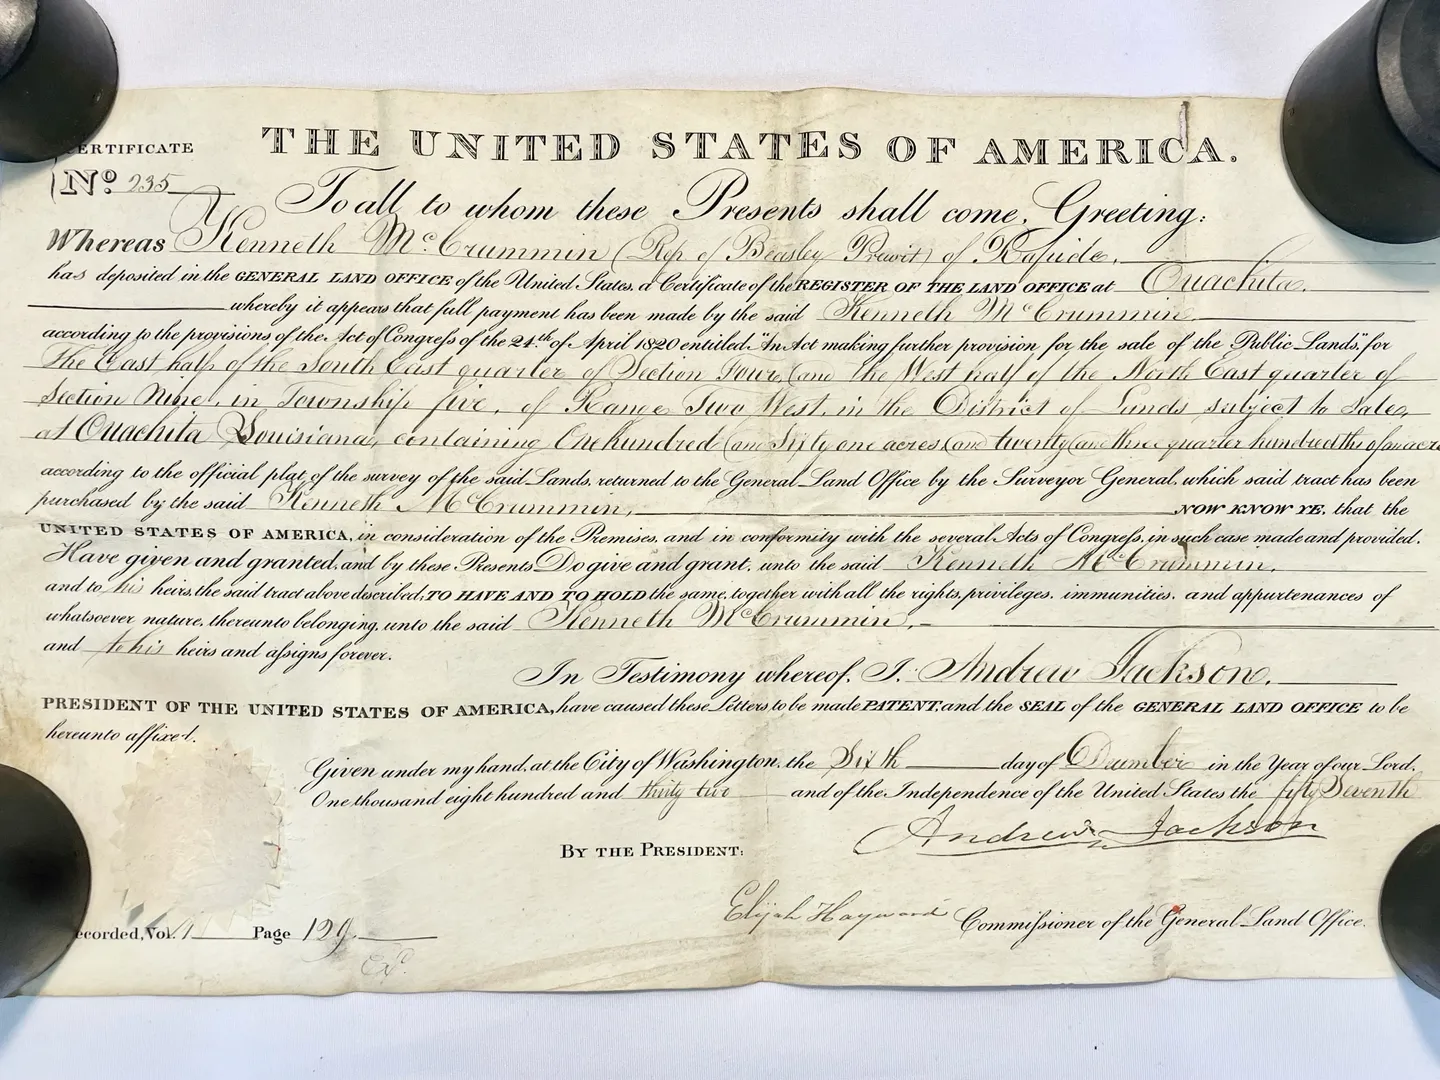 THE UNITED STATES OF AMERICA.
CERTIFICATE
No. 235
To all to whom these Presents shall come, Greeting:
Whereas Kenneth McCrummin (Rep of Beasley Prewit) of Rapide,
has deposited in the GENERAL LAND OFFICE of the United States, a Certificate of the REGISTER OF THE LAND OFFICE at Ouachita.
whereby it appears that full payment has been made by the said Kenneth McCrummin
according to the provisions of the Act of Congress of the 24th of April 1820 entitled "An Act making further provision for the sale of the Public Lands," for
the East half of the South East quarter of Section Four, and the West half of the North East quarter of
Section Nine, in Township five, of Range Two West, in the District of Lands subject to Sale,
at Ouachita Louisiana, containing One hundred and Sixty one acres, and twenty and three quarter hundredths of an acre
according to the official plat of the survey of the said Lands, returned to the General Land Office by the Surveyor General, which said tract has been
purchased by the said Kenneth McCrummin, NOW KNOW YE, that the
UNITED STATES OF AMERICA, in consideration of the Premises, and in conformity with the several Acts of Congress, in such case made and provided,
Have given and granted, and by these Presents Do give and grant, unto the said Kenneth McCrummin,
and to his heirs, the said tract above described; TO HAVE AND TO HOLD the same, together with all the rights, privileges, immunities, and appurtenances of
whatsoever nature, thereunto belonging, unto the said Kenneth McCrummin,
and to his heirs and assigns forever.
In Testimony whereof, I, Andrew Jackson,
PRESIDENT OF THE UNITED STATES OF AMERICA, have caused these Letters to be made PATENT, and the SEAL of the GENERAL LAND OFFICE to be
hereunto affixed.
Given under my hand, at the City of Washington, the Sixth day of December in the Year of our Lord,
One thousand eight hundred and thirty two and of the Independence of the United States the fifty Seventh
Andrew Jackson
BY THE PRESIDENT:
Elijah Hayward Commissioner of the General Land Office.
ecorded, Vol. 1 Page 129.